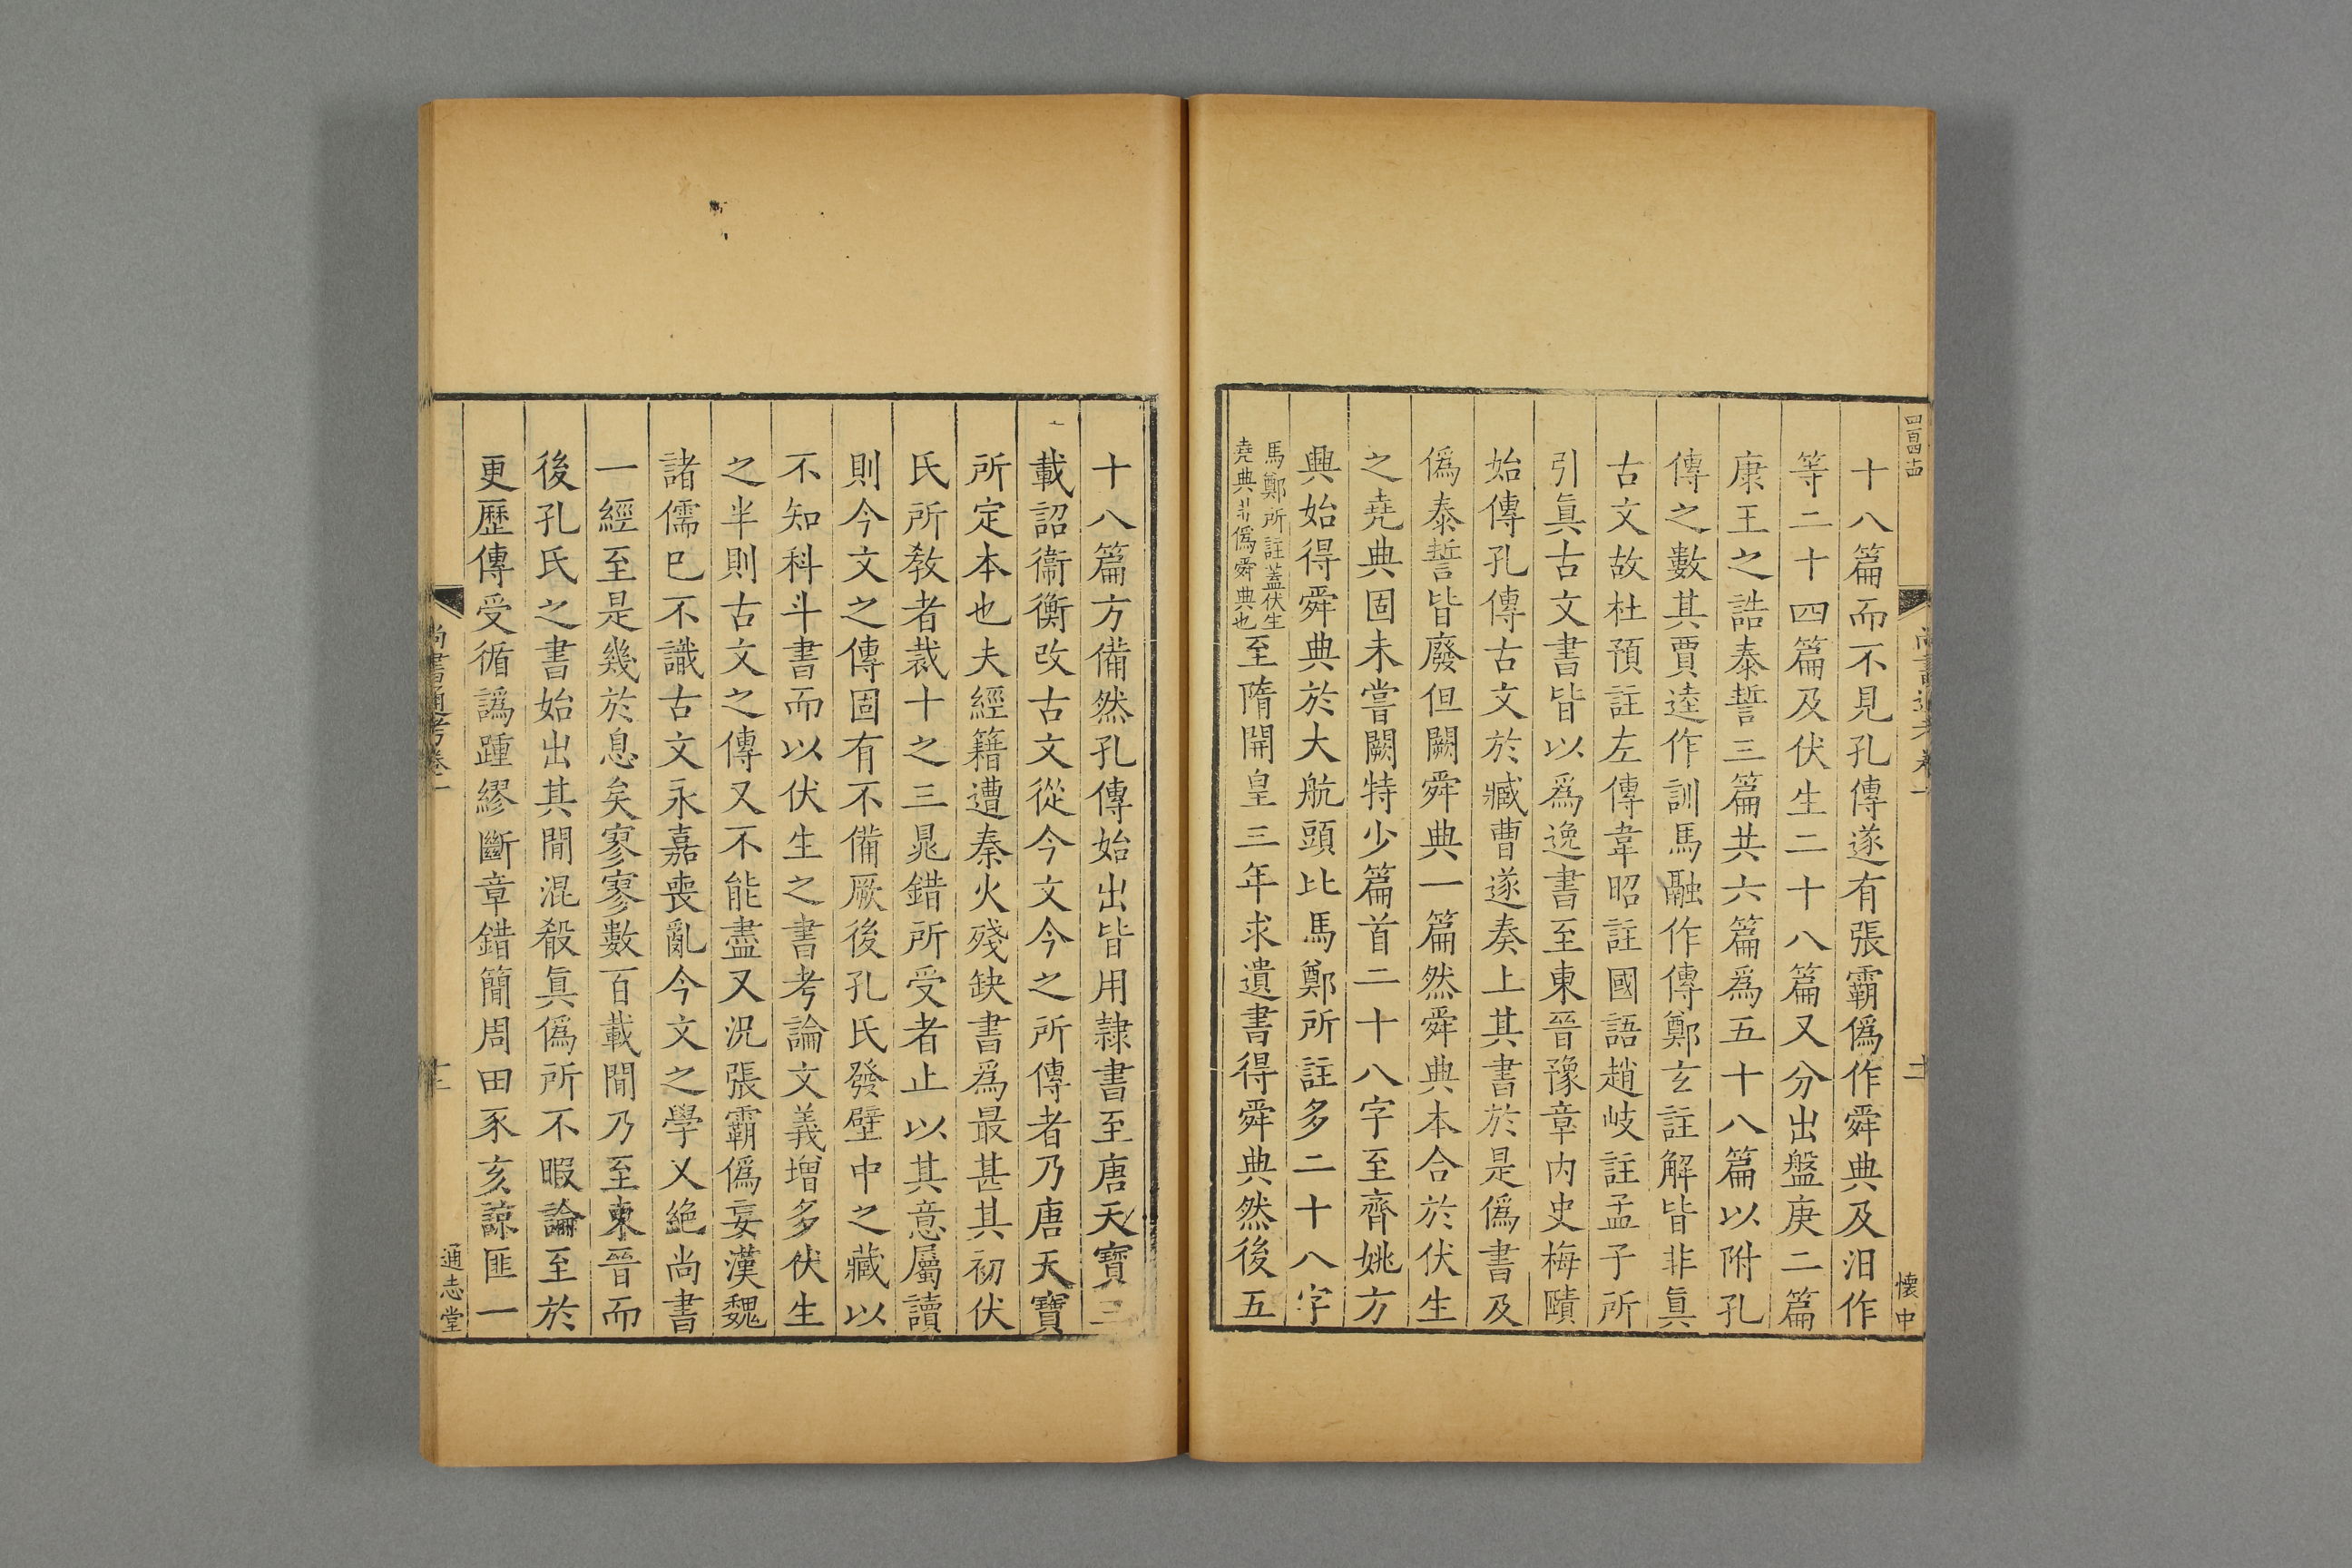 四百四十四
尚書通考卷一
十二
懐中
十八篇而不見孔傳遂有張霸僞作舜典及汨作
等二十四篇及伏生二十八篇又分出盤庚二篇
康王之誥泰誓三篇共六篇爲五十八篇以附孔
傳之數其賈逵作訓馬融作傳鄭玄註解皆非眞
古文故杜預註左傳韋昭註國語趙岐註孟子所
引眞古文書皆以爲逸書至東晉豫章内史梅賾
始傳孔傳古文於臧曹遂奏上其書於是僞書及
僞泰誓皆廢但闕舜典一篇然舜典本合於伏生
之堯典固未嘗闕特少篇首二十八字至齊姚方
興始得舜典於大航頭比馬鄭所註多二十八字
馬鄭所註蓋伏生
堯典非僞舜典也
至隋開皇三年求遺書得舜典然後五
十八篇方備然孔傳始出皆用隷書至唐天寶三
載詔衞衡改古文從今文今之所傳者乃唐天寶
所定本也夫經籍遭秦火殘缺書爲最甚其初伏
氏所教者裁十之三晁錯所受者止以其意屬讀
則今文之傳固有不備厥後孔氏發壁中之藏以
不知科斗書而以伏生之書考論文義增多伏生
之半則古文之傳又不能盡又况張霸僞妄漢魏
諸儒已不識古文永嘉喪亂今文之學又絶尚書
一經至是幾於息矣寥寥數百載間乃至東晉而
後孔氏之書始出其間混殽眞僞所不暇論至於
更歷傳受循譌踵繆斷章錯簡周田豕亥諒匪一
尚書通考卷一
通志堂